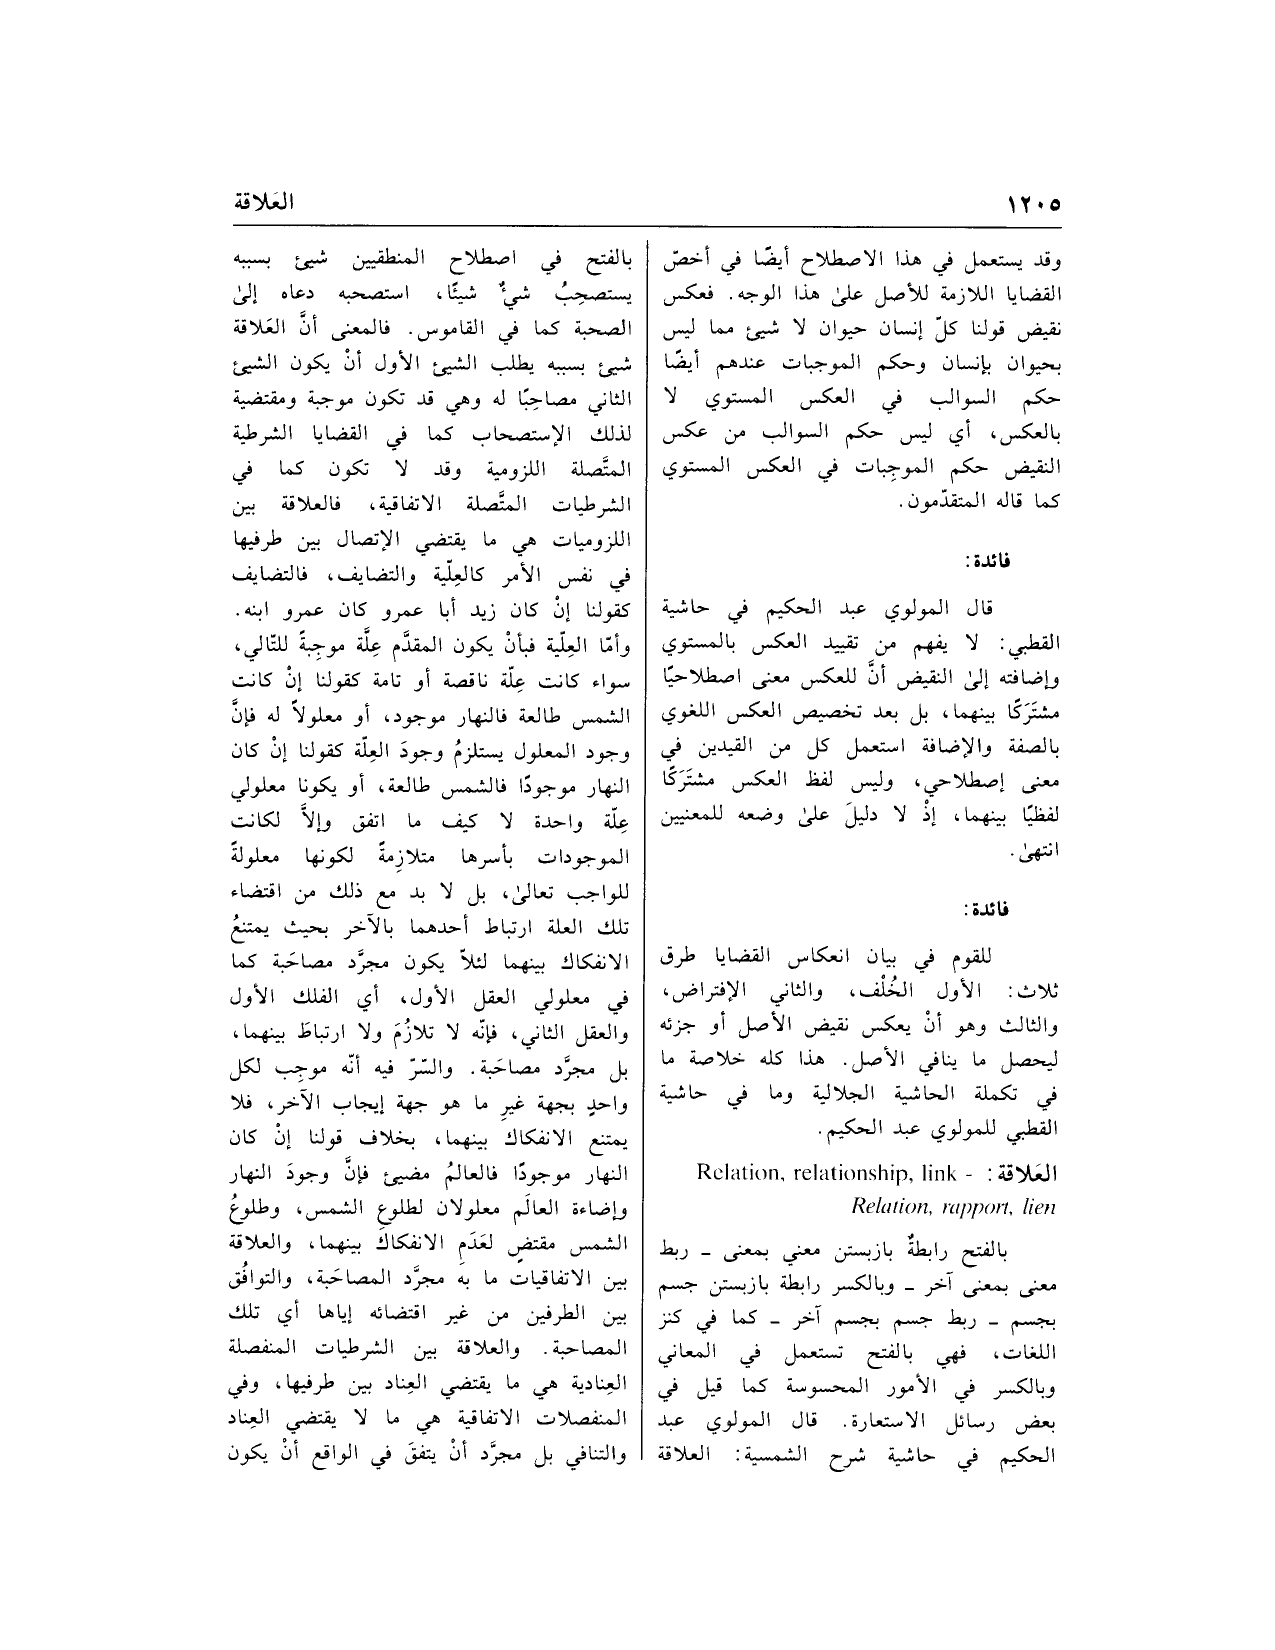 ١٢٠٥
العَلاقة
وقد يستعمل في هذا الاصطلاح أيضًا في أخصّ
القضايا اللازمة للأصل علىٰ هذا الوجه. فعكس
نقيض قولنا كلّ إنسان حيوان لا شيئ مما ليس
بحيوان بإنسان وحكم الموجبات عندهم أيضًا
حكم السوالب في العكس المستوي لا
بالعكس، أي ليس حكم السوالب من عكس
النقيض حكم الموجِبات في العكس المستوي
كما قاله المتقدّمون.
فائدة:
قال المولوي عبد الحكيم في حاشية
القطبي: لا يفهم من تقييد العكس بالمستوي
وإضافته إلىٰ النقيض أنَّ للعكس معنى اصطلاحيًا
مشتَرَكًا بينهما، بل بعد تخصيص العكس اللغوي
بالصفة والإضافة استعمل كل من القيدين في
معنى إصطلاحي، وليس لفظ العكس مشتَرَكًا
لفظيًا بينهما، إذْ لا دليلَ علىٰ وضعه للمعنيين
انتهىٰ.
فائدة:
للقوم في بيان انعكاس القضايا طرق
ثلاث: الأول الخُلْف، والثاني الإفتراض،
والثالث وهو أنْ يعكس نقيض الأصل أو جزئه
ليحصل ما ينافي الأصل. هذا كله خلاصة ما
في تكملة الحاشية الجلالية وما في حاشية
القطبي للمولوي عبد الحكيم.
العَلاقة: - Relation, relationship, link
Relation, rapport, lien
بالفتح رابطةٌ بازبستن معني بمعنى ــ ربط
معنى بمعنى آخر ــ وبالكسر رابطة بازبستن جسم
بجسم ــ ربط جسم بجسم آخر ــ كما في كنز
اللغات، فهي بالفتح تستعمل في المعاني
وبالكسر في الأمور المحسوسة كما قيل في
بعض رسائل الاستعارة. قال المولوي عبد
الحكيم في حاشية شرح الشمسية: العلاقة
بالفتح في اصطلاح المنطقيين شيئ بسببه
يستصحِبُ شيءٌ شيئًا، استصحبه دعاه إلىٰ
الصحبة كما في القاموس. فالمعنى أنَّ العَلاقة
شيئ بسببه يطلب الشيئ الأول أنْ يكون الشيئ
الثاني مصاحِبًا له وهي قد تكون موجبة ومقتضية
لذلك الإستصحاب كما في القضايا الشرطية
المتَّصلة اللزومية وقد لا تكون كما في
الشرطيات المتَّصلة الاتفاقية، فالعلاقة بين
اللزوميات هي ما يقتضي الإتصال بين طرفيها
في نفس الأمر كالعِلّية والتضايف، فالتضايف
كقولنا إنْ كان زيد أبا عمرو كان عمرو ابنه.
وأمّا العِلّية فبأنْ يكون المقدَّم عِلَّة موجِبةً للتّالي،
سواء كانت عِلّة ناقصة أو تامة كقولنا إنْ كانت
الشمس طالعة فالنهار موجود، أو معلولاً له فإنَّ
وجود المعلول يستلزمُ وجودَ العِلّة كقولنا إنْ كان
النهار موجودًا فالشمس طالعة، أو يكونا معلولي
عِلّة واحدة لا كيف ما اتفق وإلاَّ لكانت
الموجودات بأسرها متلازِمةً لكونها معلولةً
للواجب تعالىٰ، بل لا بد مع ذلك من اقتضاء
تلك العلة ارتباط أحدهما بالآخر بحيث يمتنعُ
الانفكاك بينهما لئلاّ يكون مجرَّد مصاحَبة كما
في معلولي العقل الأول، أي الفلك الأول
والعقل الثاني، فإنّه لا تلازُمَ ولا ارتباطَ بينهما،
بل مجرَّد مصاحَبة. والسّرّ فيه أنّه موجِب لكل
واحدٍ بجهة غيرِ ما هو جهة إيجاب الآخر، فلا
يمتنع الانفكاك بينهما، بخلاف قولنا إنْ كان
النهار موجودًا فالعالمُ مضيئ فإنَّ وجودَ النهار
وإضاءة العالَم معلولان لطلوعِ الشمس، وطلوعُ
الشمس مقتضٍ لعَدَمِ الانفكاك بينهما، والعلاقة
بين الاتفاقيات ما بهَ مجرَّد المصاحَبة، والتوافُق
بين الطرفين من غير اقتضائه إياها أي تلك
المصاحبة. والعلاقة بين الشرطيات المنفصلة
العِنادية هي ما يقتضي العِناد بين طرفيها، وفي
المنفصلات الاتفاقية هي ما لا يقتضي العِناد
والتنافي بل مجرَّد أنْ يتفقَ في الواقع أنْ يكون